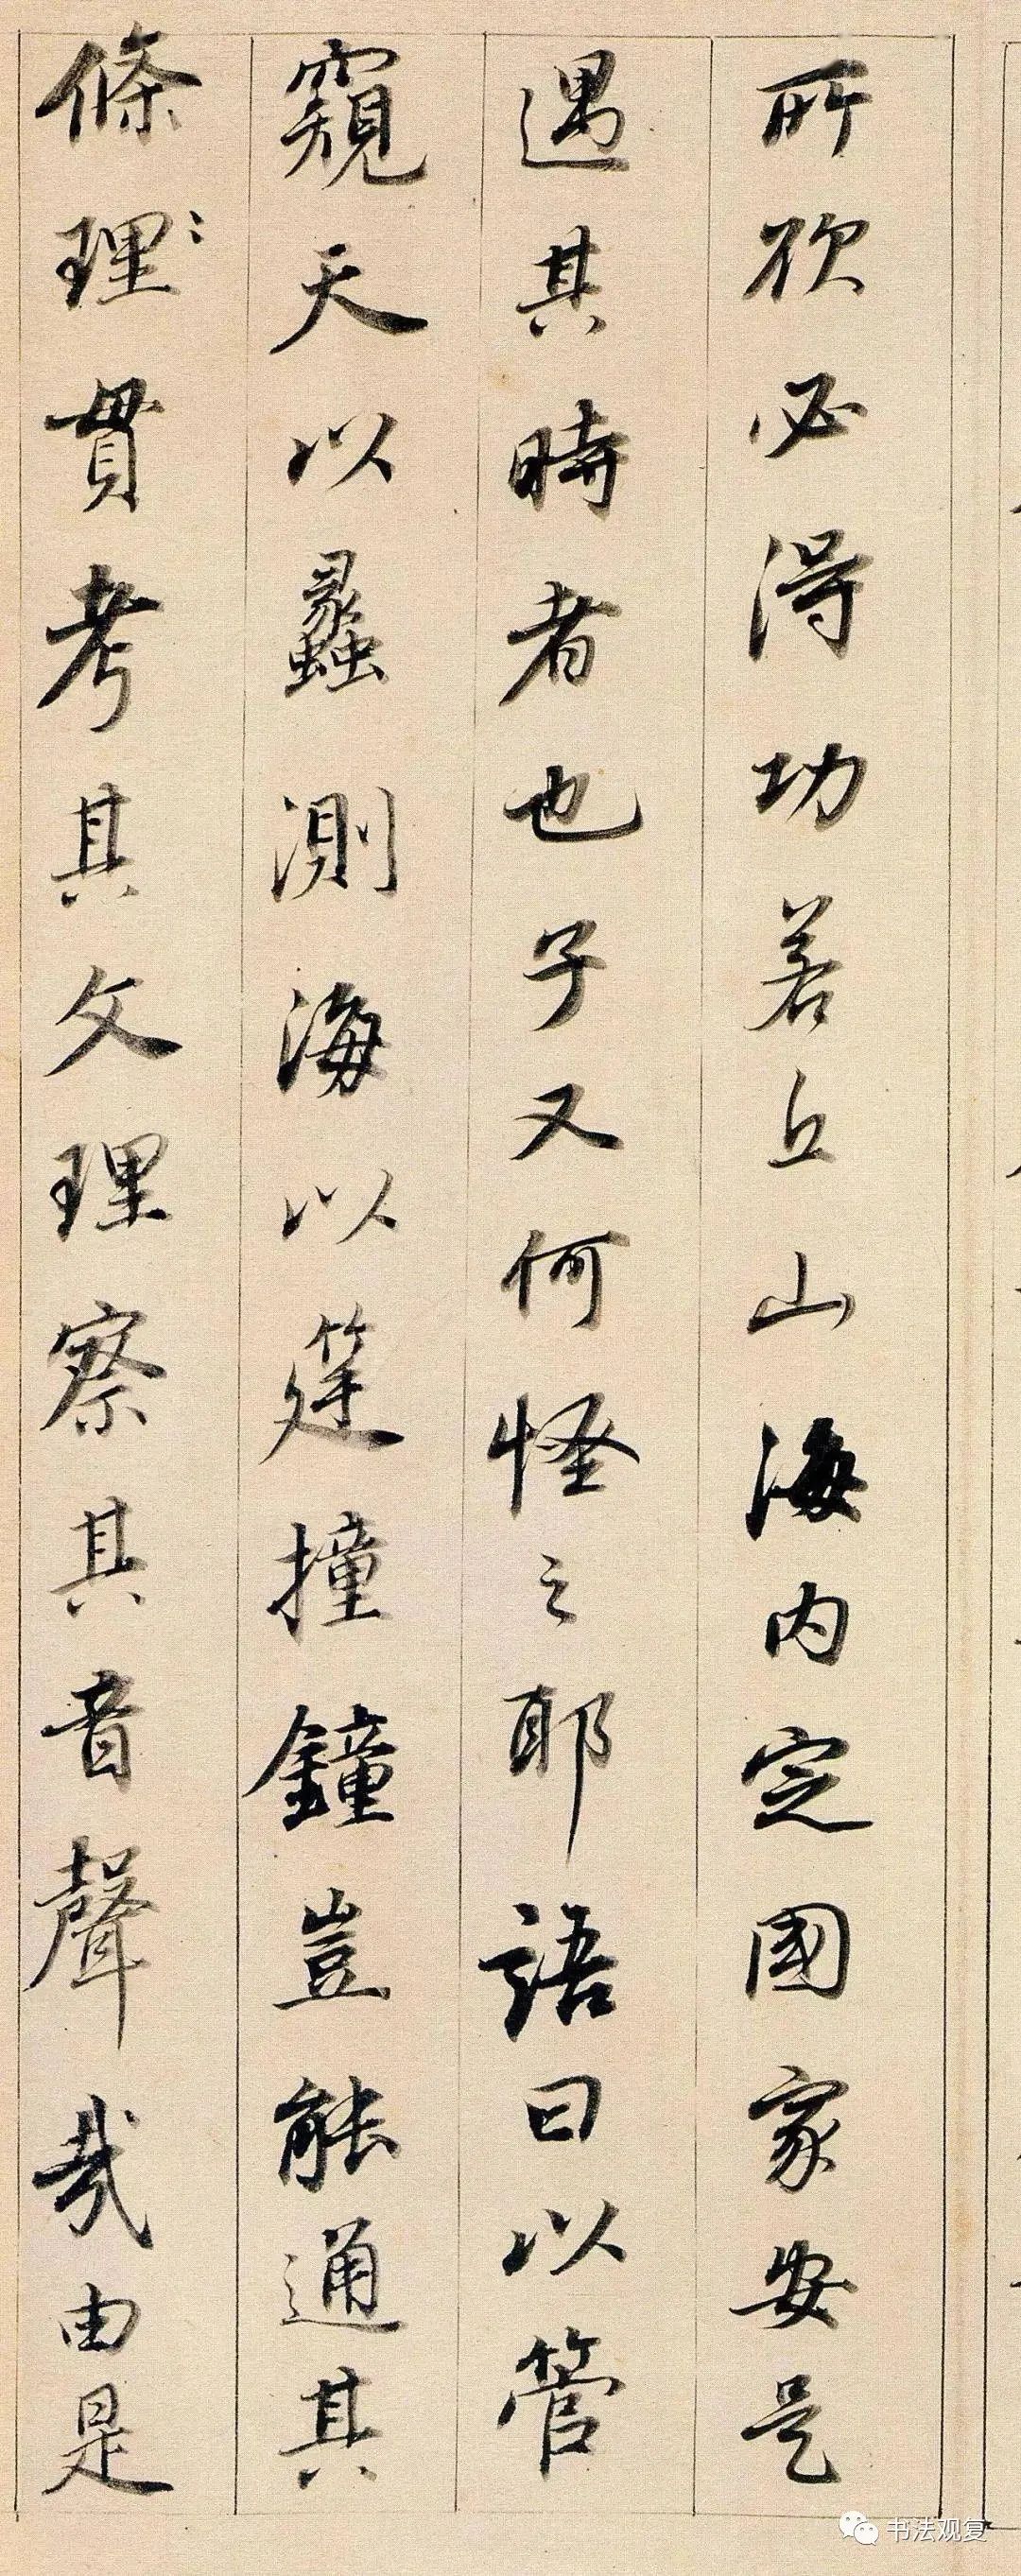 所欲必得功若丘山海内定國家安是
遇其時者也子又何怪之耶語曰以管
窺天以蠡測海以筳撞鐘豈能通其
條理〻貫考其文理察其音聲哉由是
书法观复